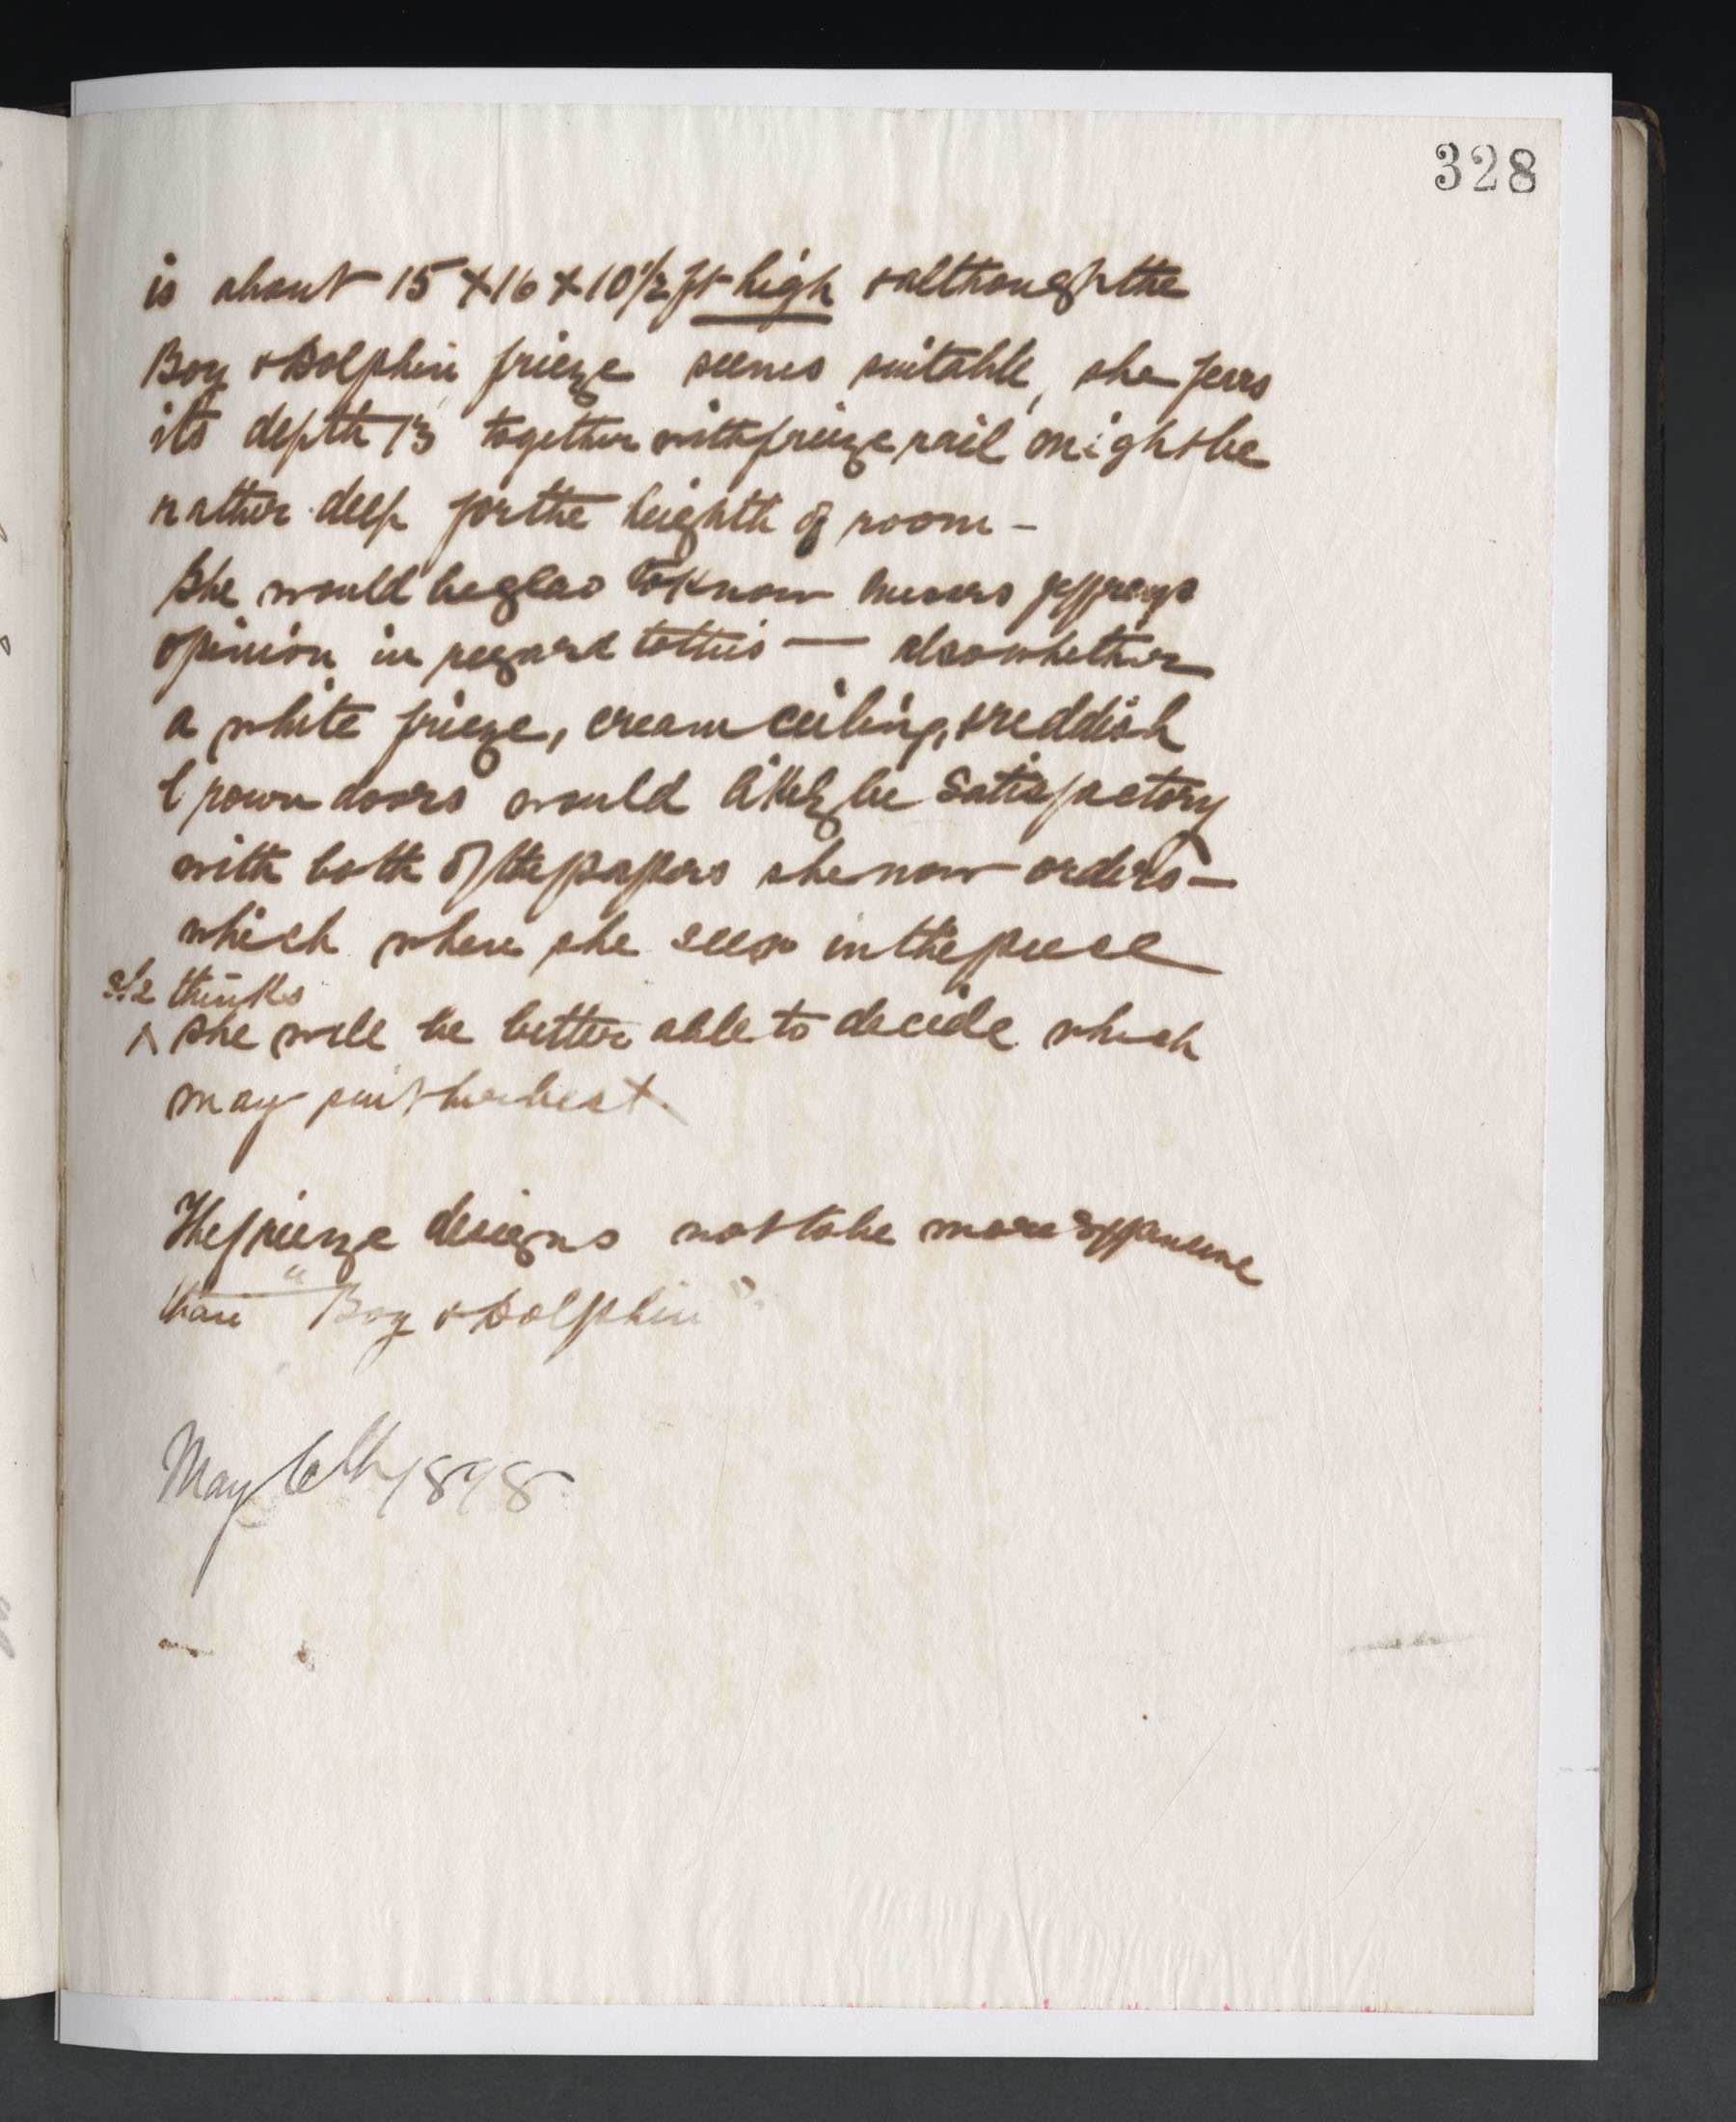 328
is about 15 × 16 × 10½ ft high & although the
Boy & Dolphin frieze seems suitable, she fears
its depth 13 together with frieze rail might be
rather deep for the heighth of room -
She would be glad to know Messrs Jeffreys
opinion in regard to this — also whether
a white frieze, cream ceiling, & reddish
brown doors would likely be satisfactory
with both of the papers she now orders —
which when she sees in the piece
she thinks
^ she will be better able to decide which
may suit her best.
The frieze designs not to be more expensive
than "Boy & Dolphin".
May 6th 1898